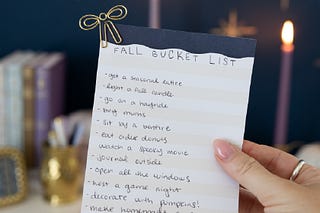 FALL BUCKET LIST
- get a seasonal
- light a fall candle
- go on a hayride
- buy mums
- sit by a bonfire
- eat cider donuts
watch a spooky movie
- journal outside
- open all the windows
- host a game night
- decorate with pumpkins!
- make homemade